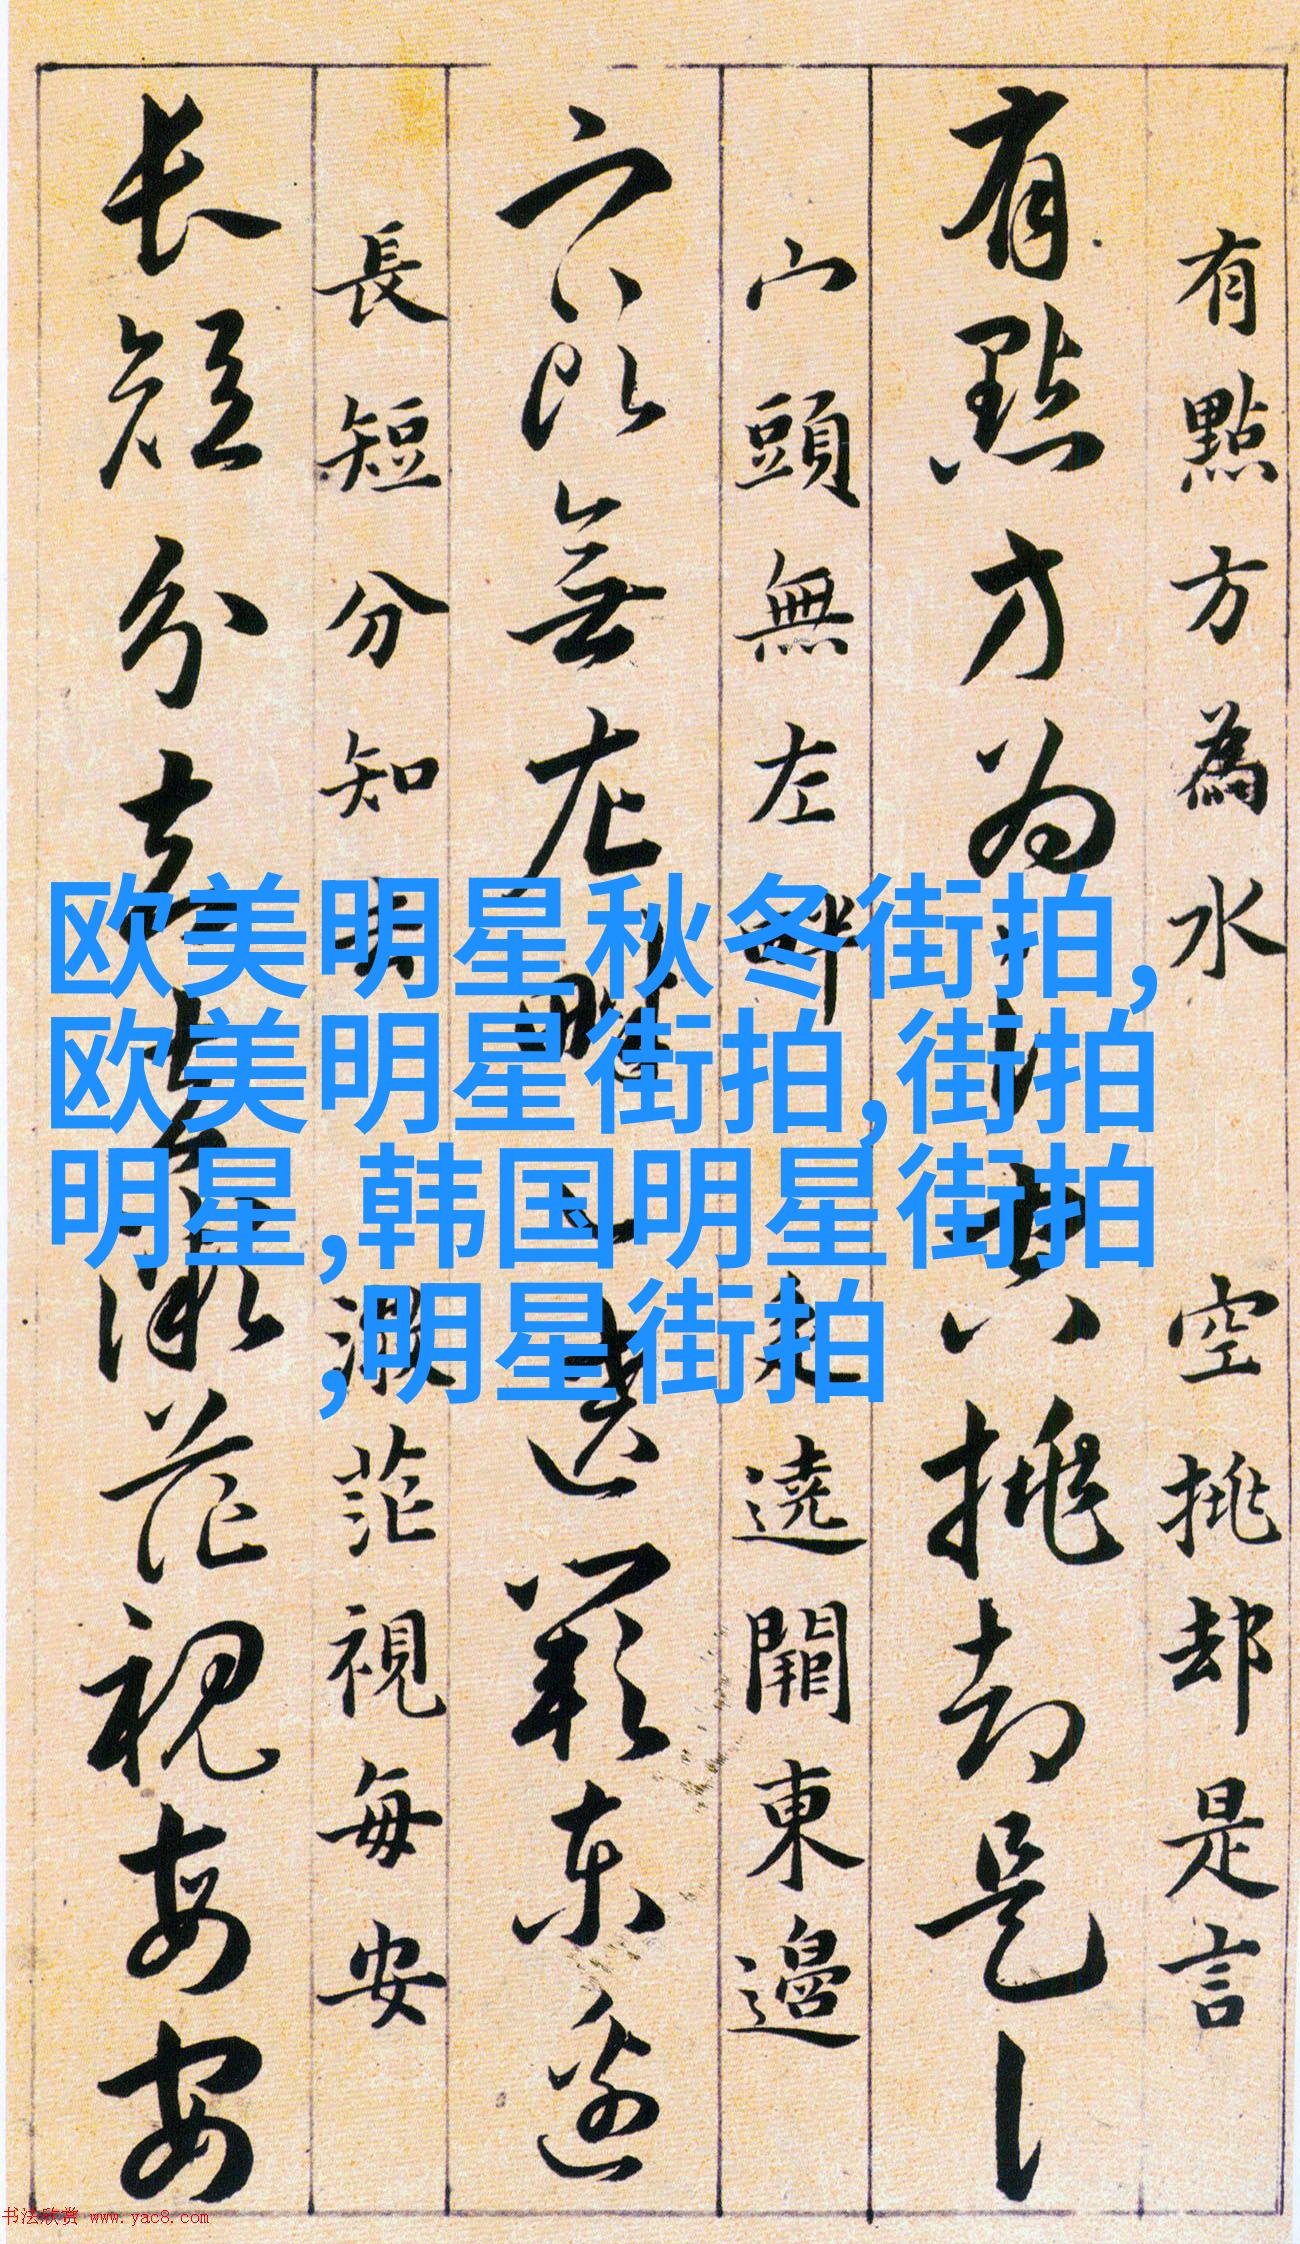 有點方為水 空挑却是言
有點方为 挑却是
宀頭無左畔 遶闕東邊
宀頭無左畔 遶闕東邊
長短分知去 微茫視每安
长短分知去 微茫視每安
欧美明星秋冬街拍,
欧美明星街拍,街拍
明星,韩国明星街拍
,明星街拍
书法欣赏 www.yac8.com